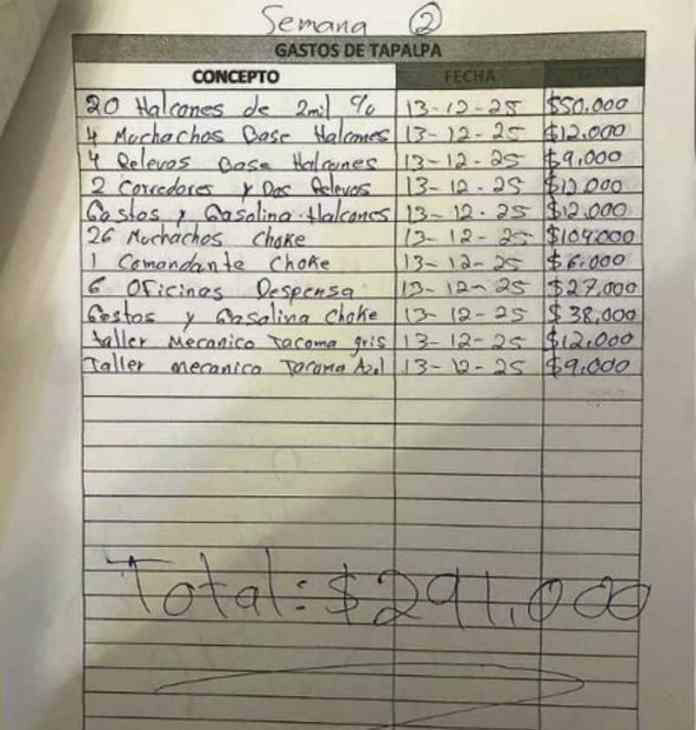 Semana 2
GASTOS DE TAPALPA
CONCEPTO FECHA
20 Halcones de 2mil % 13-12-25 $50.000
4 Muchachos Base Halcones 13-12-25 $12.000
4 Relevos Base Halcones 13-12-25 $9,000
2 Corredores y Dos Relevos 13-12-25 $12.000
Gastos y Gasolina Halcones 13-12-25 $12.000
26 Muchachos Choke 13-12-25 $104.000
1 Comandante Choke 13-12-25 $6.000
6 Oficinas Despensa 13-12-25 $27,000
Gastos y Gasolina Choke 13-12-25 $38,000
taller Mecanico Tacoma gris 13-12-25 $12.000
Taller mecanico Tacoma Azul 13-12-25 $9,000
Total: $291,000